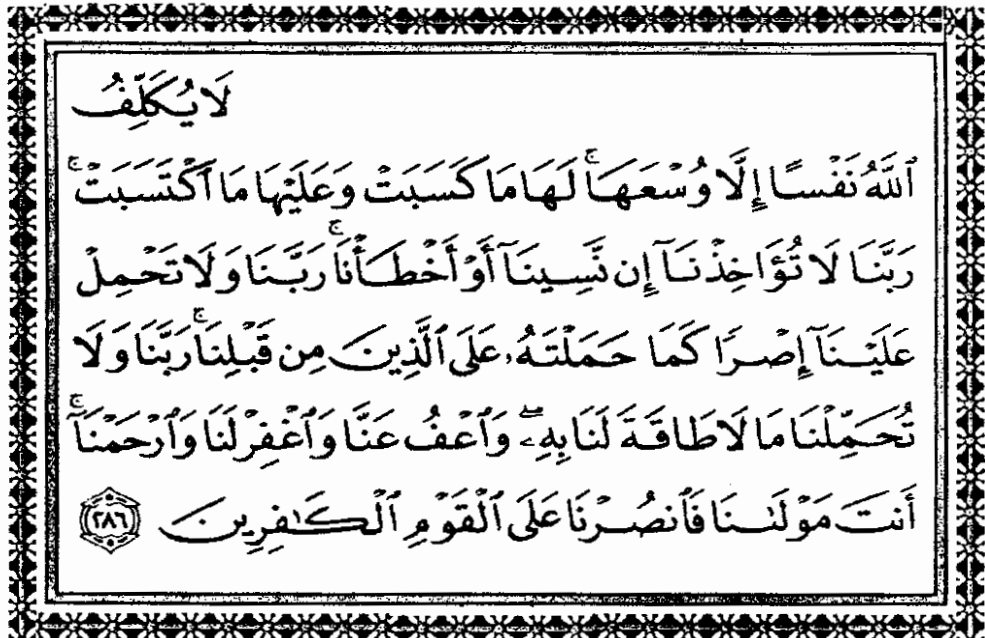 لَا يُكَلِّفُ
ٱللَّهُ نَفْسًا إِلَّا وُسْعَهَاۚ لَهَا مَا كَسَبَتْ وَعَلَيْهَا مَا ٱكْتَسَبَتْۗ
رَبَّنَا لَا تُؤَاخِذْنَآ إِن نَّسِينَآ أَوْ أَخْطَأْنَاۚ رَبَّنَا وَلَا تَحْمِلْ
عَلَيْنَآ إِصْرًا كَمَا حَمَلْتَهُۥ عَلَى ٱلَّذِينَ مِن قَبْلِنَاۚ رَبَّنَا وَلَا
تُحَمِّلْنَا مَا لَا طَاقَةَ لَنَا بِهِۦۖ وَٱعْفُ عَنَّا وَٱغْفِرْ لَنَا وَٱرْحَمْنَآۚ
أَنتَ مَوْلَىٰنَا فَٱنصُرْنَا عَلَى ٱلْقَوْمِ ٱلْكَٰفِرِينَ ٢٨٦